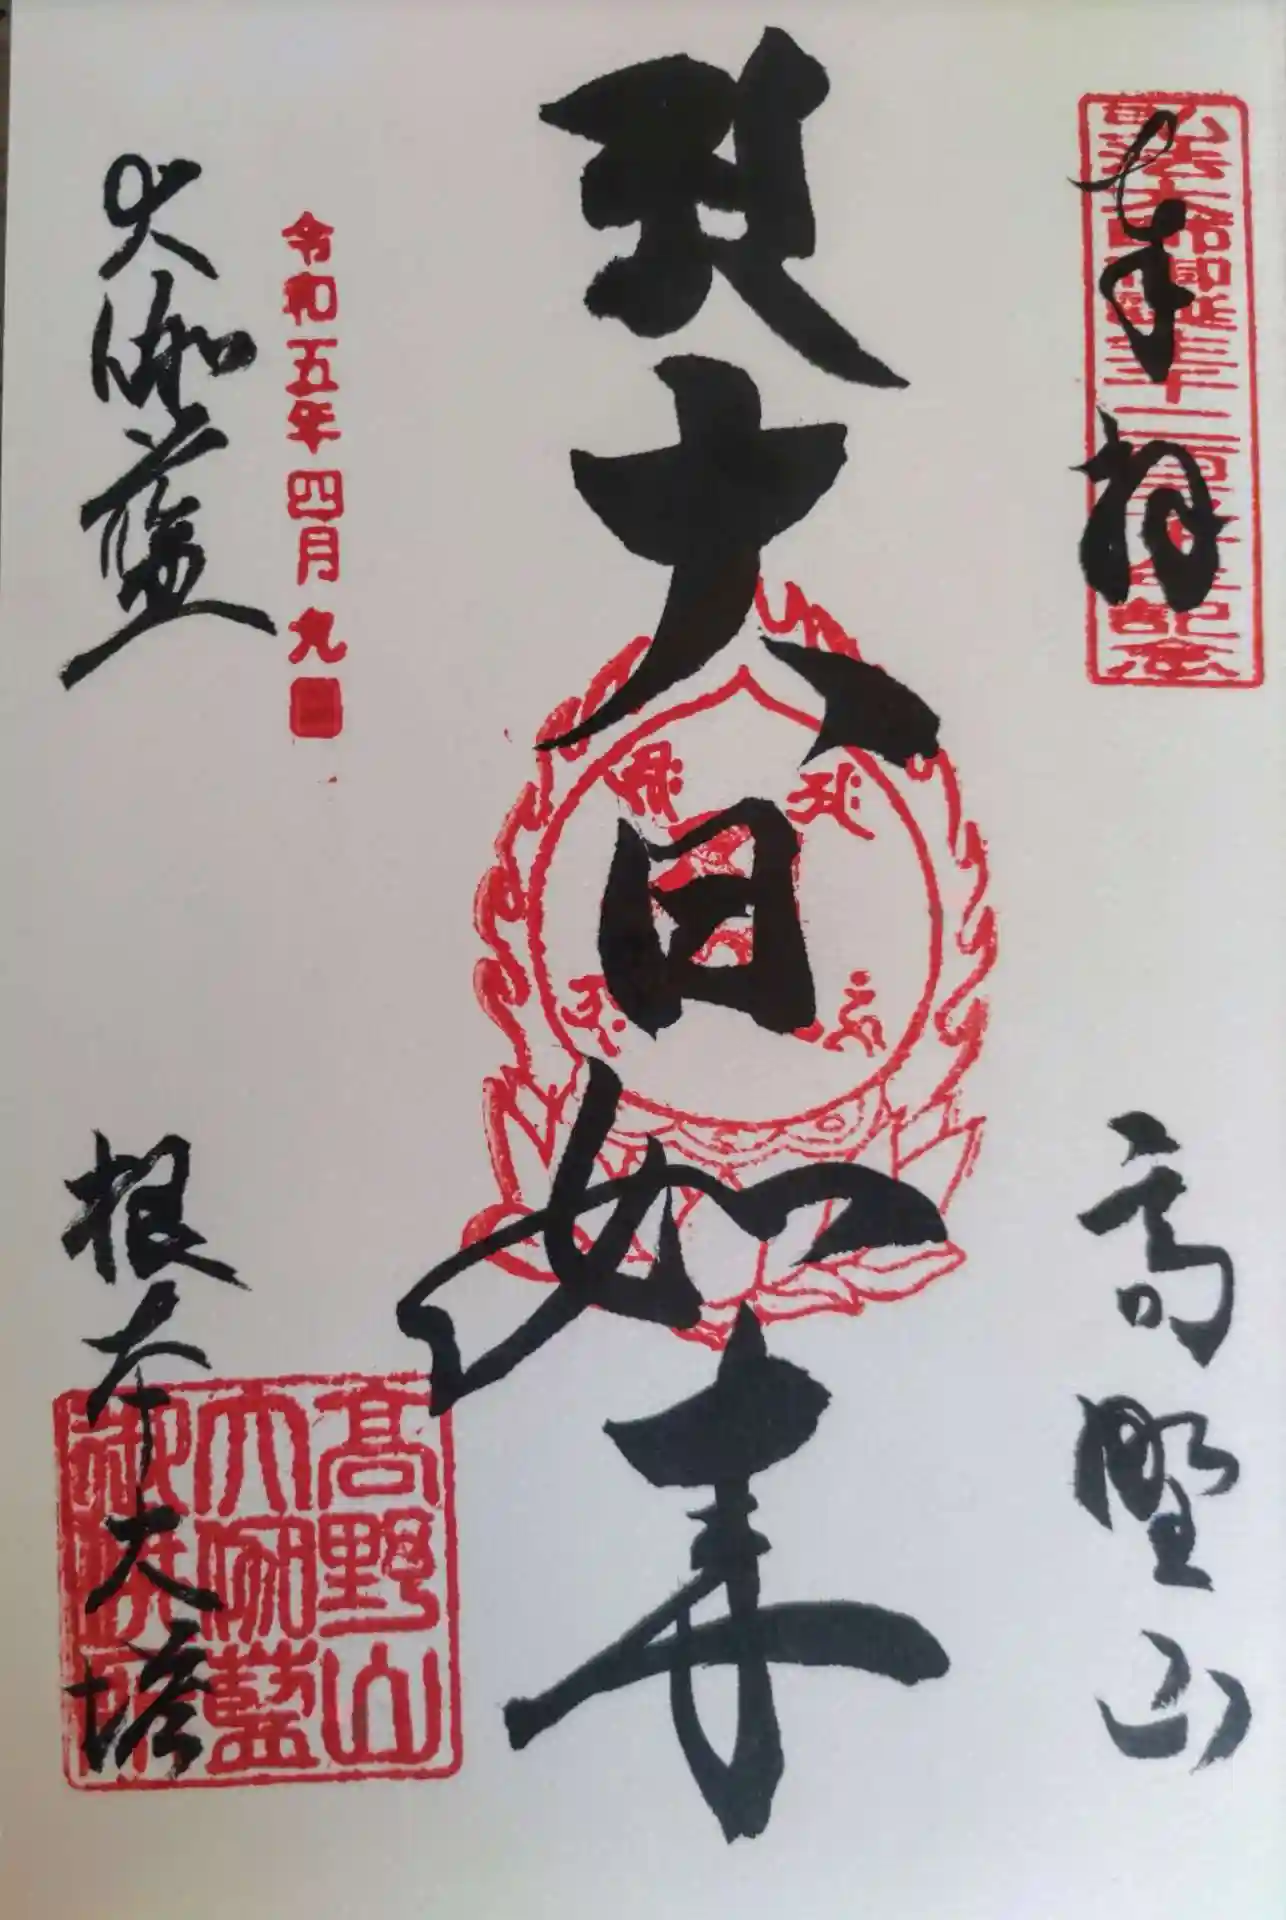 奉拝
高野山
弘法大師御誕生千二百五十年記念
大日如来
令和五年四月九
大伽藍
根本大塔
高野山
大伽藍
御供所